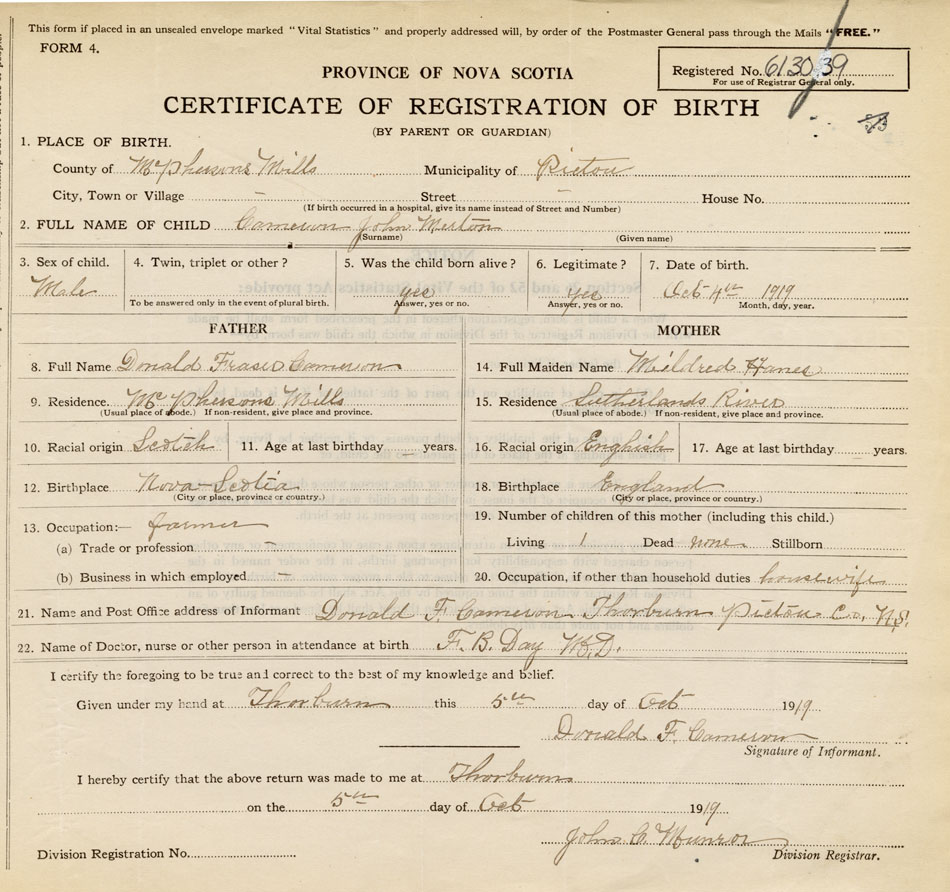 This form if placed in an unsealed envelope marked "Vital Statistics" and properly addressed will, by order of the Postmaster General pass through the Mails "FREE."
FORM 4.
Registered No. 613039
For use of Registrar General only.
PROVINCE OF NOVA SCOTIA
CERTIFICATE OF REGISTRATION OF BIRTH
(BY PARENT OR GUARDIAN)
1. PLACE OF BIRTH.
County of McPhersons Mills Municipality of Pictou
City, Town or Village - Street - House No.
(If birth occurred in a hospital, give its name instead of Street and Number)
2. FULL NAME OF CHILD Cameron John Merton
(Surname) (Given name)
3. Sex of child. 4. Twin, triplet or other? 5. Was the child born alive? 6. Legitimate? 7. Date of birth.
Male yes yes Oct 4th 1919
To be answered only in the event of plural birth. Answer, yes or no. Answer, yes or no. Month, day, year.
FATHER MOTHER
8. Full Name Donald Fraser Cameron 14. Full Maiden Name Mildred Hanes
9. Residence. McPhersons Mills 15. Residence Sutherlands River
(Usual place of abode.) If non-resident, give place and province. (Usual place of abode.) If non-resident, give place and province.
10. Racial origin Scotch 11. Age at last birthday - years. 16. Racial origin English 17. Age at last birthday - years.
12. Birthplace Nova Scotia 18. Birthplace England
(City or place, province or country.) (City or place, province or country.)
13. Occupation:— farmer 19. Number of children of this mother (including this child.)
(a) Trade or profession - Living 1 Dead none Stillborn
(b) Business in which employed - 20. Occupation, if other than household duties housewife
21. Name and Post Office address of Informant Donald F. Cameron Thorburn Pictou Co., N.S.
22. Name of Doctor, nurse or other person in attendance at birth F. B. Day M.D.
I certify the foregoing to be true and correct to the best of my knowledge and belief.
Given under my hand at Thorburn this 5th day of Oct 1919.
Donald F. Cameron
Signature of Informant.
I hereby certify that the above return was made to me at Thorburn
on the 5th day of Oct 1919.
John C. Munroe
Division Registration No. Division Registrar.